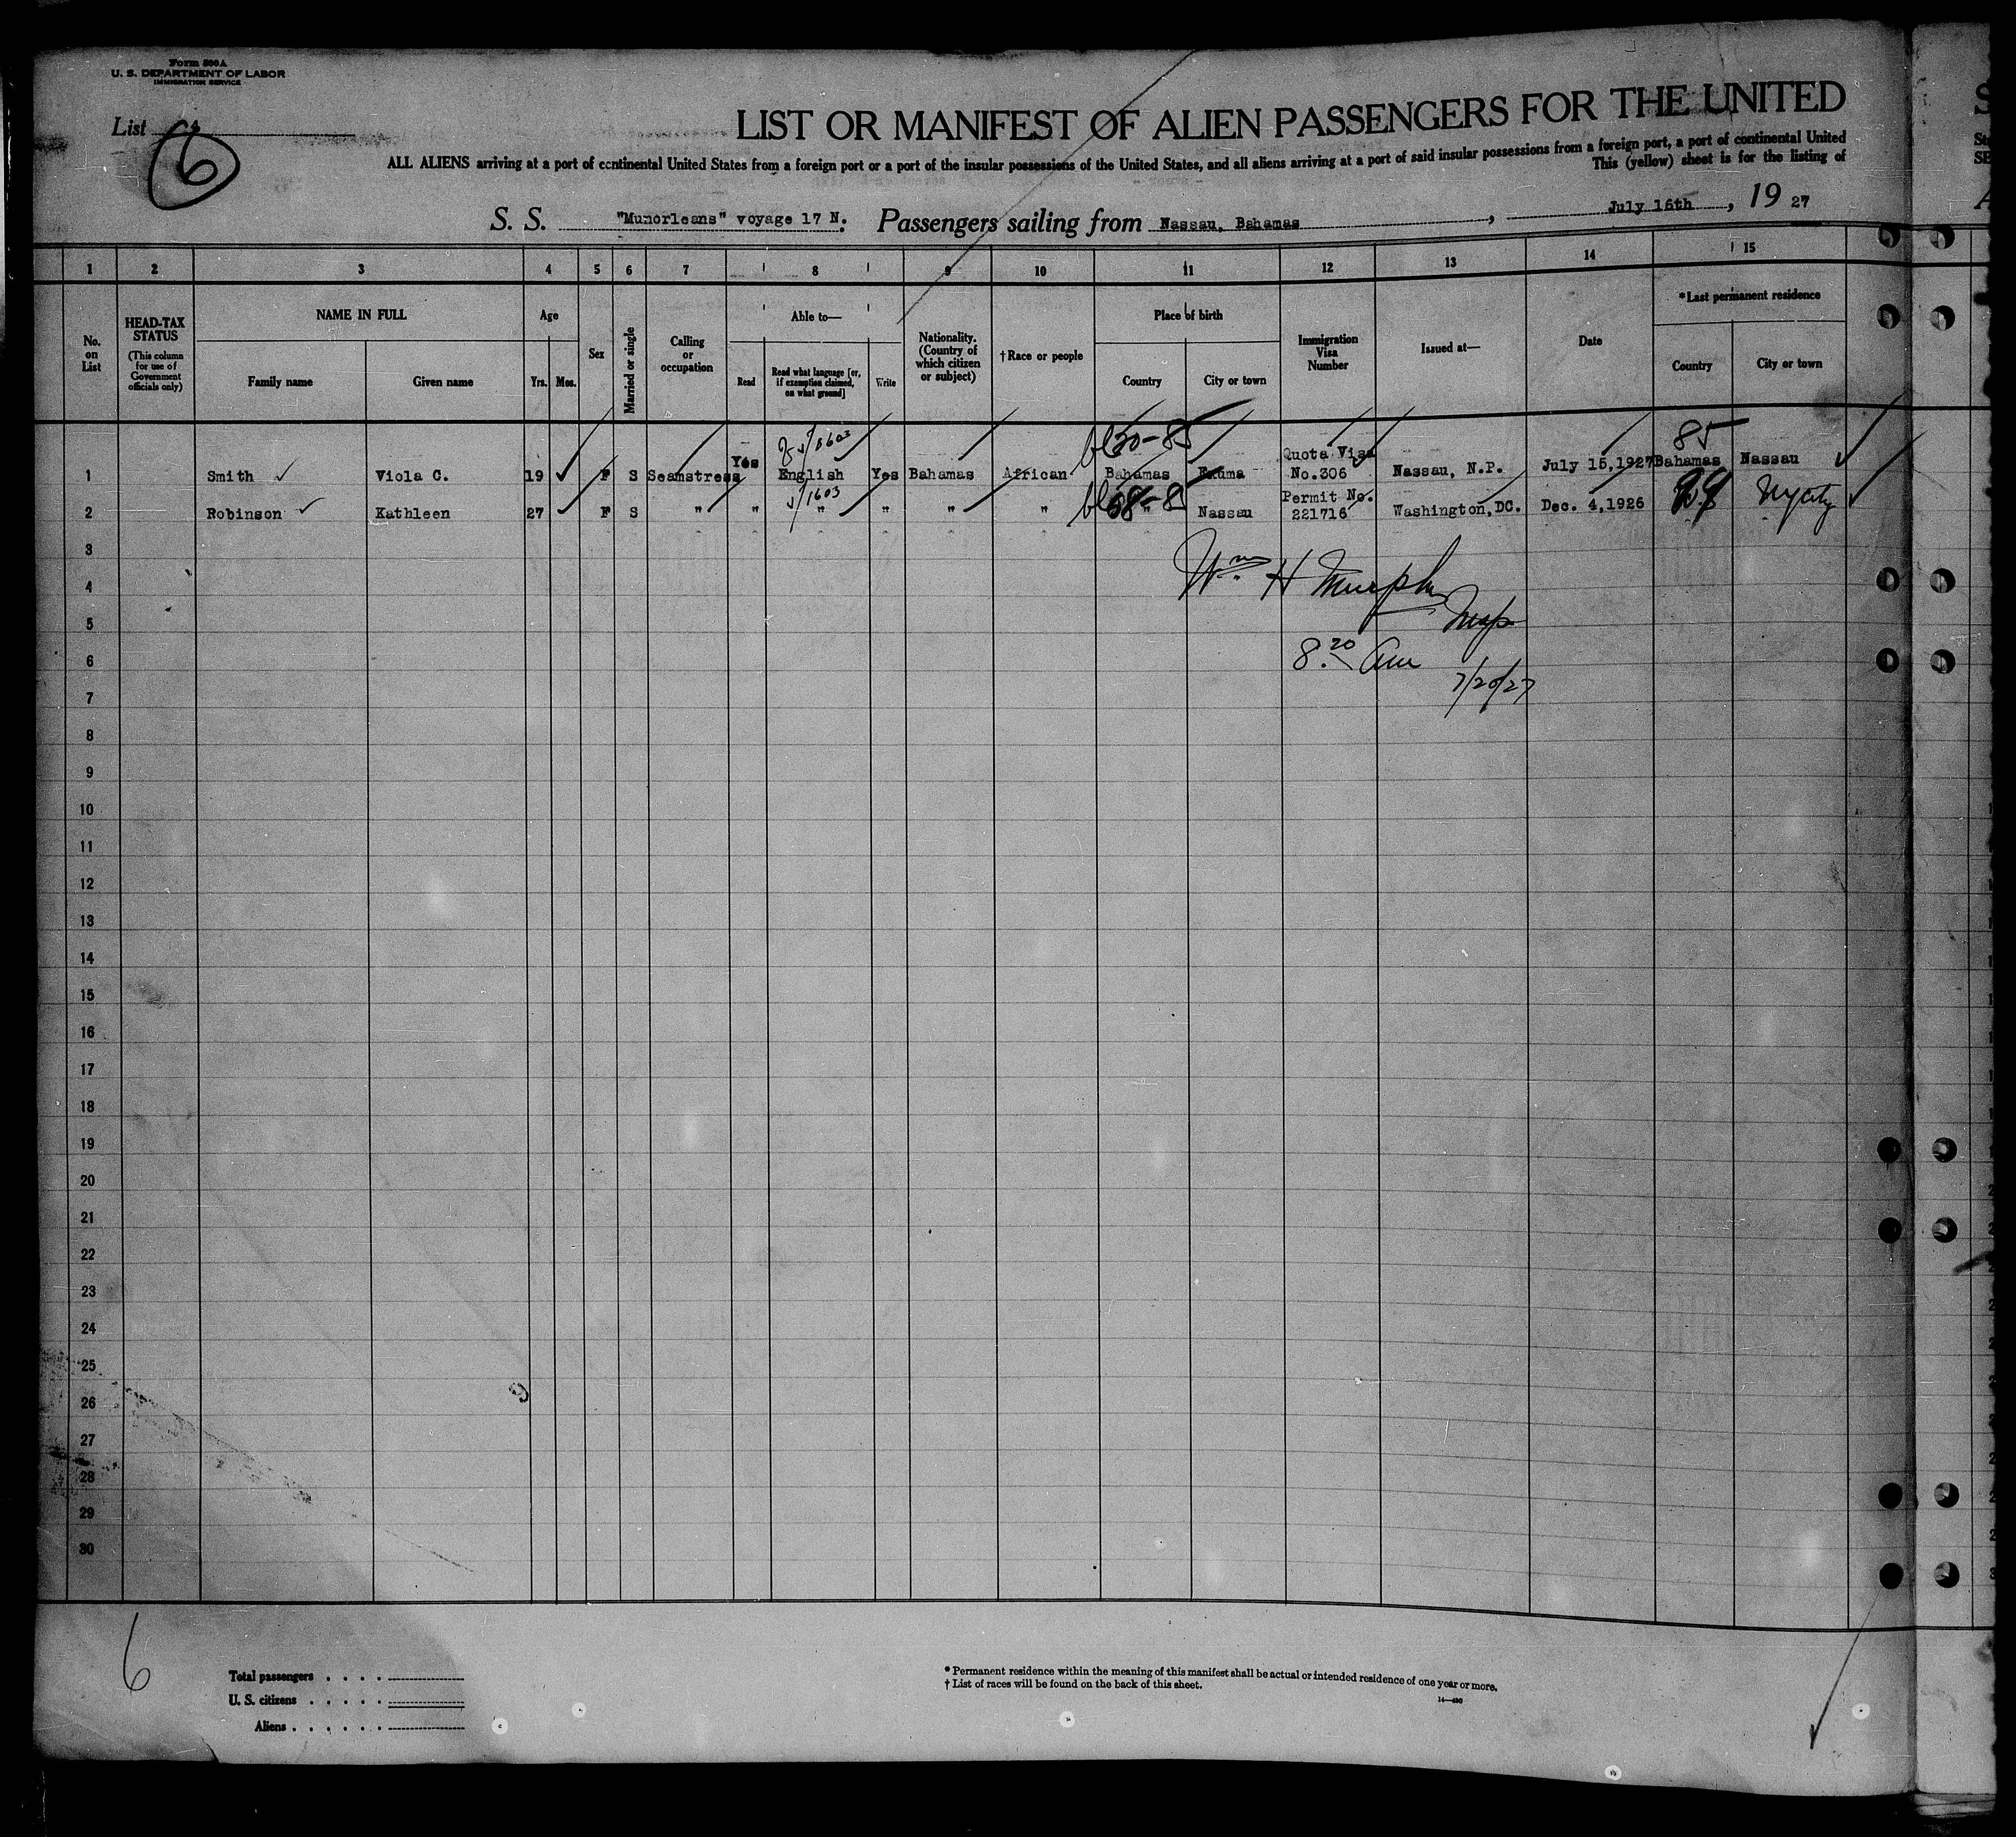 Form 500A
U. S. DEPARTMENT OF LABOR
IMMIGRATION SERVICE
List
6
LIST OR MANIFEST OF ALIEN PASSENGERS FOR THE UNITED
ALL ALIENS arriving at a port of continental United States from a foreign port or a port of the insular possessions of the United States, and all aliens arriving at a port of said insular possessions from a foreign port, a port of continental United
This (yellow) sheet is for the listing of
S. S. "Munorleans" voyage 17 N. Passengers sailing from Nassau, Bahamas, July 16th, 19 27
1 2 3 4 5 6 7 8 9 10 11 12 13 14 15
No. on List
HEAD-TAX STATUS (This column for use of Government officials only)
NAME IN FULL
Family name Given name
Age
Yrs. Mos.
Sex
Married or single
Calling or occupation
Able to—
Read Read what language [or, if exemption claimed, on what ground] Write
Nationality. (Country of which citizen or subject)
†Race or people
Place of birth
Country City or town
Immigration Visa Number
Issued at—
Date
*Last permanent residence
Country City or town
30-85 85
1 Smith Viola C. 19 F S Seamstress Yes English Yes Bahamas African Bahamas Exuma Quota Visa No.306 Nassau, N.P. July 15,1927 Bahamas Nassau
1603
2 Robinson Kathleen 27 F S " " " " " " " Nassau Permit No. 221716 Washington,DC. Dec. 4,1926 NY City
3
Wm H Murphy
4
Insp
5
8.20 am
6
7/20/27
7
8
9
10
11
12
13
14
15
16
17
18
19
20
21
22
23
24
25
26
27
28
29
30
6
Total passengers . . . .
U. S. citizens . . . . .
Aliens . . . . . .
* Permanent residence within the meaning of this manifest shall be actual or intended residence of one year or more.
† List of races will be found on the back of this sheet.